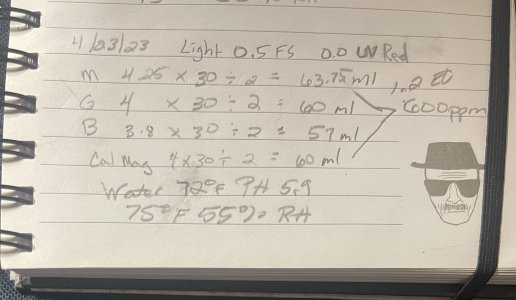 4/23/23 Light 0.5 FS 0.0 UV Red
M 4.25 x 30 ÷ 2 = 63.75 ml
1.2 EC
G 4 x 30 ÷ 2 = 60 ml
600ppm
B 3.8 x 30 ÷ 2 = 57 ml
Cal Mag 4 x 30 ÷ 2 = 60 ml
Water 72°F PH 5.9
75°F 55% RH